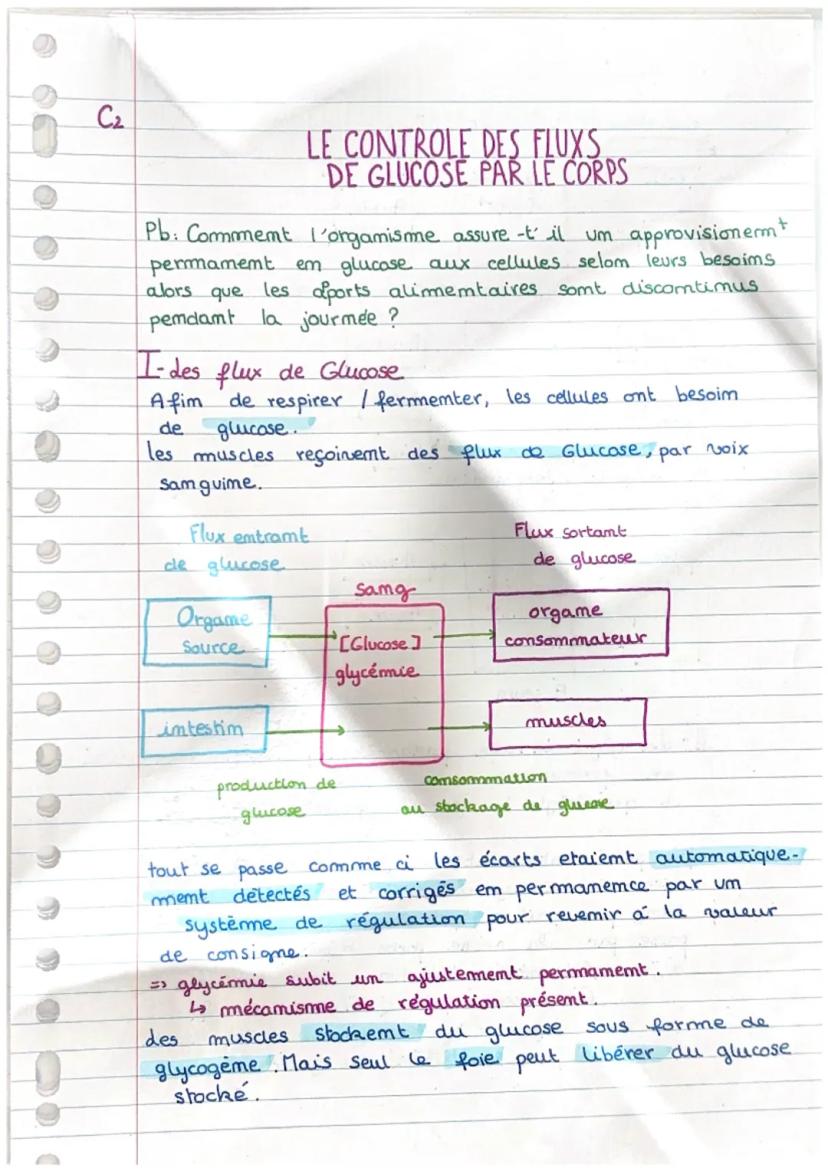 C2
LE CONTROLE DES FLUXS
DE GLUCOSE PAR LE CORPS
Pb: Comment l'organisme assure-t'il un approvisionemt
permament en glucose aux cellules selon leurs besoins
alors que les aports alimentaires sont discontinus
pendant la journée ?
I-des flux de Glucose
Afin de respirer / fermenter, les cellules ont besoin
de glucose.
les muscles reçoivent des flux de Glucose, par voix
sanguine.
Flux entrant
de glucose
Flux sortant
de glucose
Sang
Organe
Source
[Glucose]
glycémie
organe
consommateur
intestin
muscles
production de
glucose
consommation
ou stockage de glucose
tout se passe comme ci les écarts etaient automatique-
ment détectés et corrigés en permanence par un
système de régulation pour revenir à la valeur
de consigne.
=> glycémie subit un ajustement permament.
↳ mécanisme de régulation présent.
des muscles stockent du glucose sous forme de
glycogène. Mais seul le foie peut libérer du glucose
stocké.